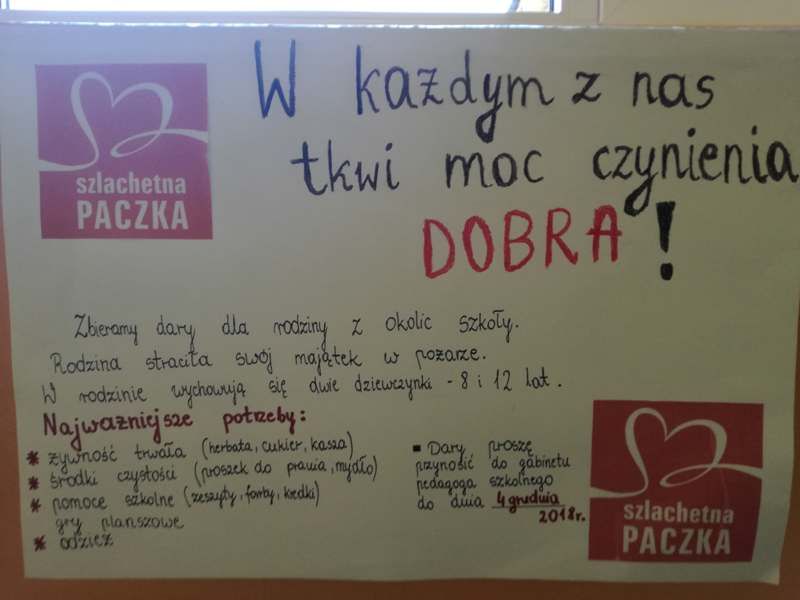 szlachetna
PACZKA
W każdym z nas
tkwi moc czynienia
DOBRA!
Zbieramy dary dla rodziny z okolic szkoły.
Rodzina straciła swój majątek w pożarze.
W rodzinie wychowują się dwie dziewczynki - 8 i 12 lat.
Najważniejsze potrzeby:
* żywność trwała (herbata, cukier, kasza)
* środki czystości (proszek do prania, mydło)
* pomoce szkolne (zeszyty, farby, kredki)
gry planszowe
* odzież
▪ Dary proszę
przynosić do gabinetu
pedagoga szkolnego
do dnia 4 grudnia
2018r.
szlachetna
PACZKA